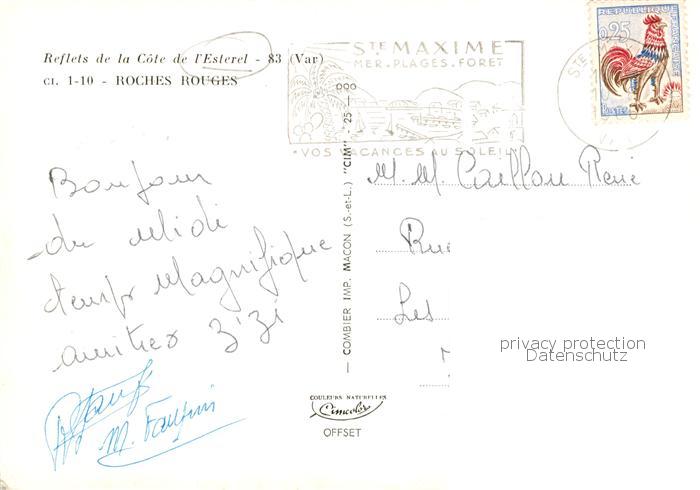 Reflets de la Côte de l'Esterel - 83 (Var)
CI. 1-10 - ROCHES ROUGES
STE MAXIME
MER. PLAGES. FORET
VOS VACANCES AU SOLEIL
REPUBLIQUE FRANÇAISE
0,25
Postes
STE
Bonjour
du Midi
temps Magnifique
amitiés Zizi
M. M. Caillou René
Rue
Les
COMBIER IMP. MACON (S.-et-L.) "CIM" - 25 -
privacy protection
Datenschutz
COULEURS NATURELLES
Cimcolor
OFFSET
M.